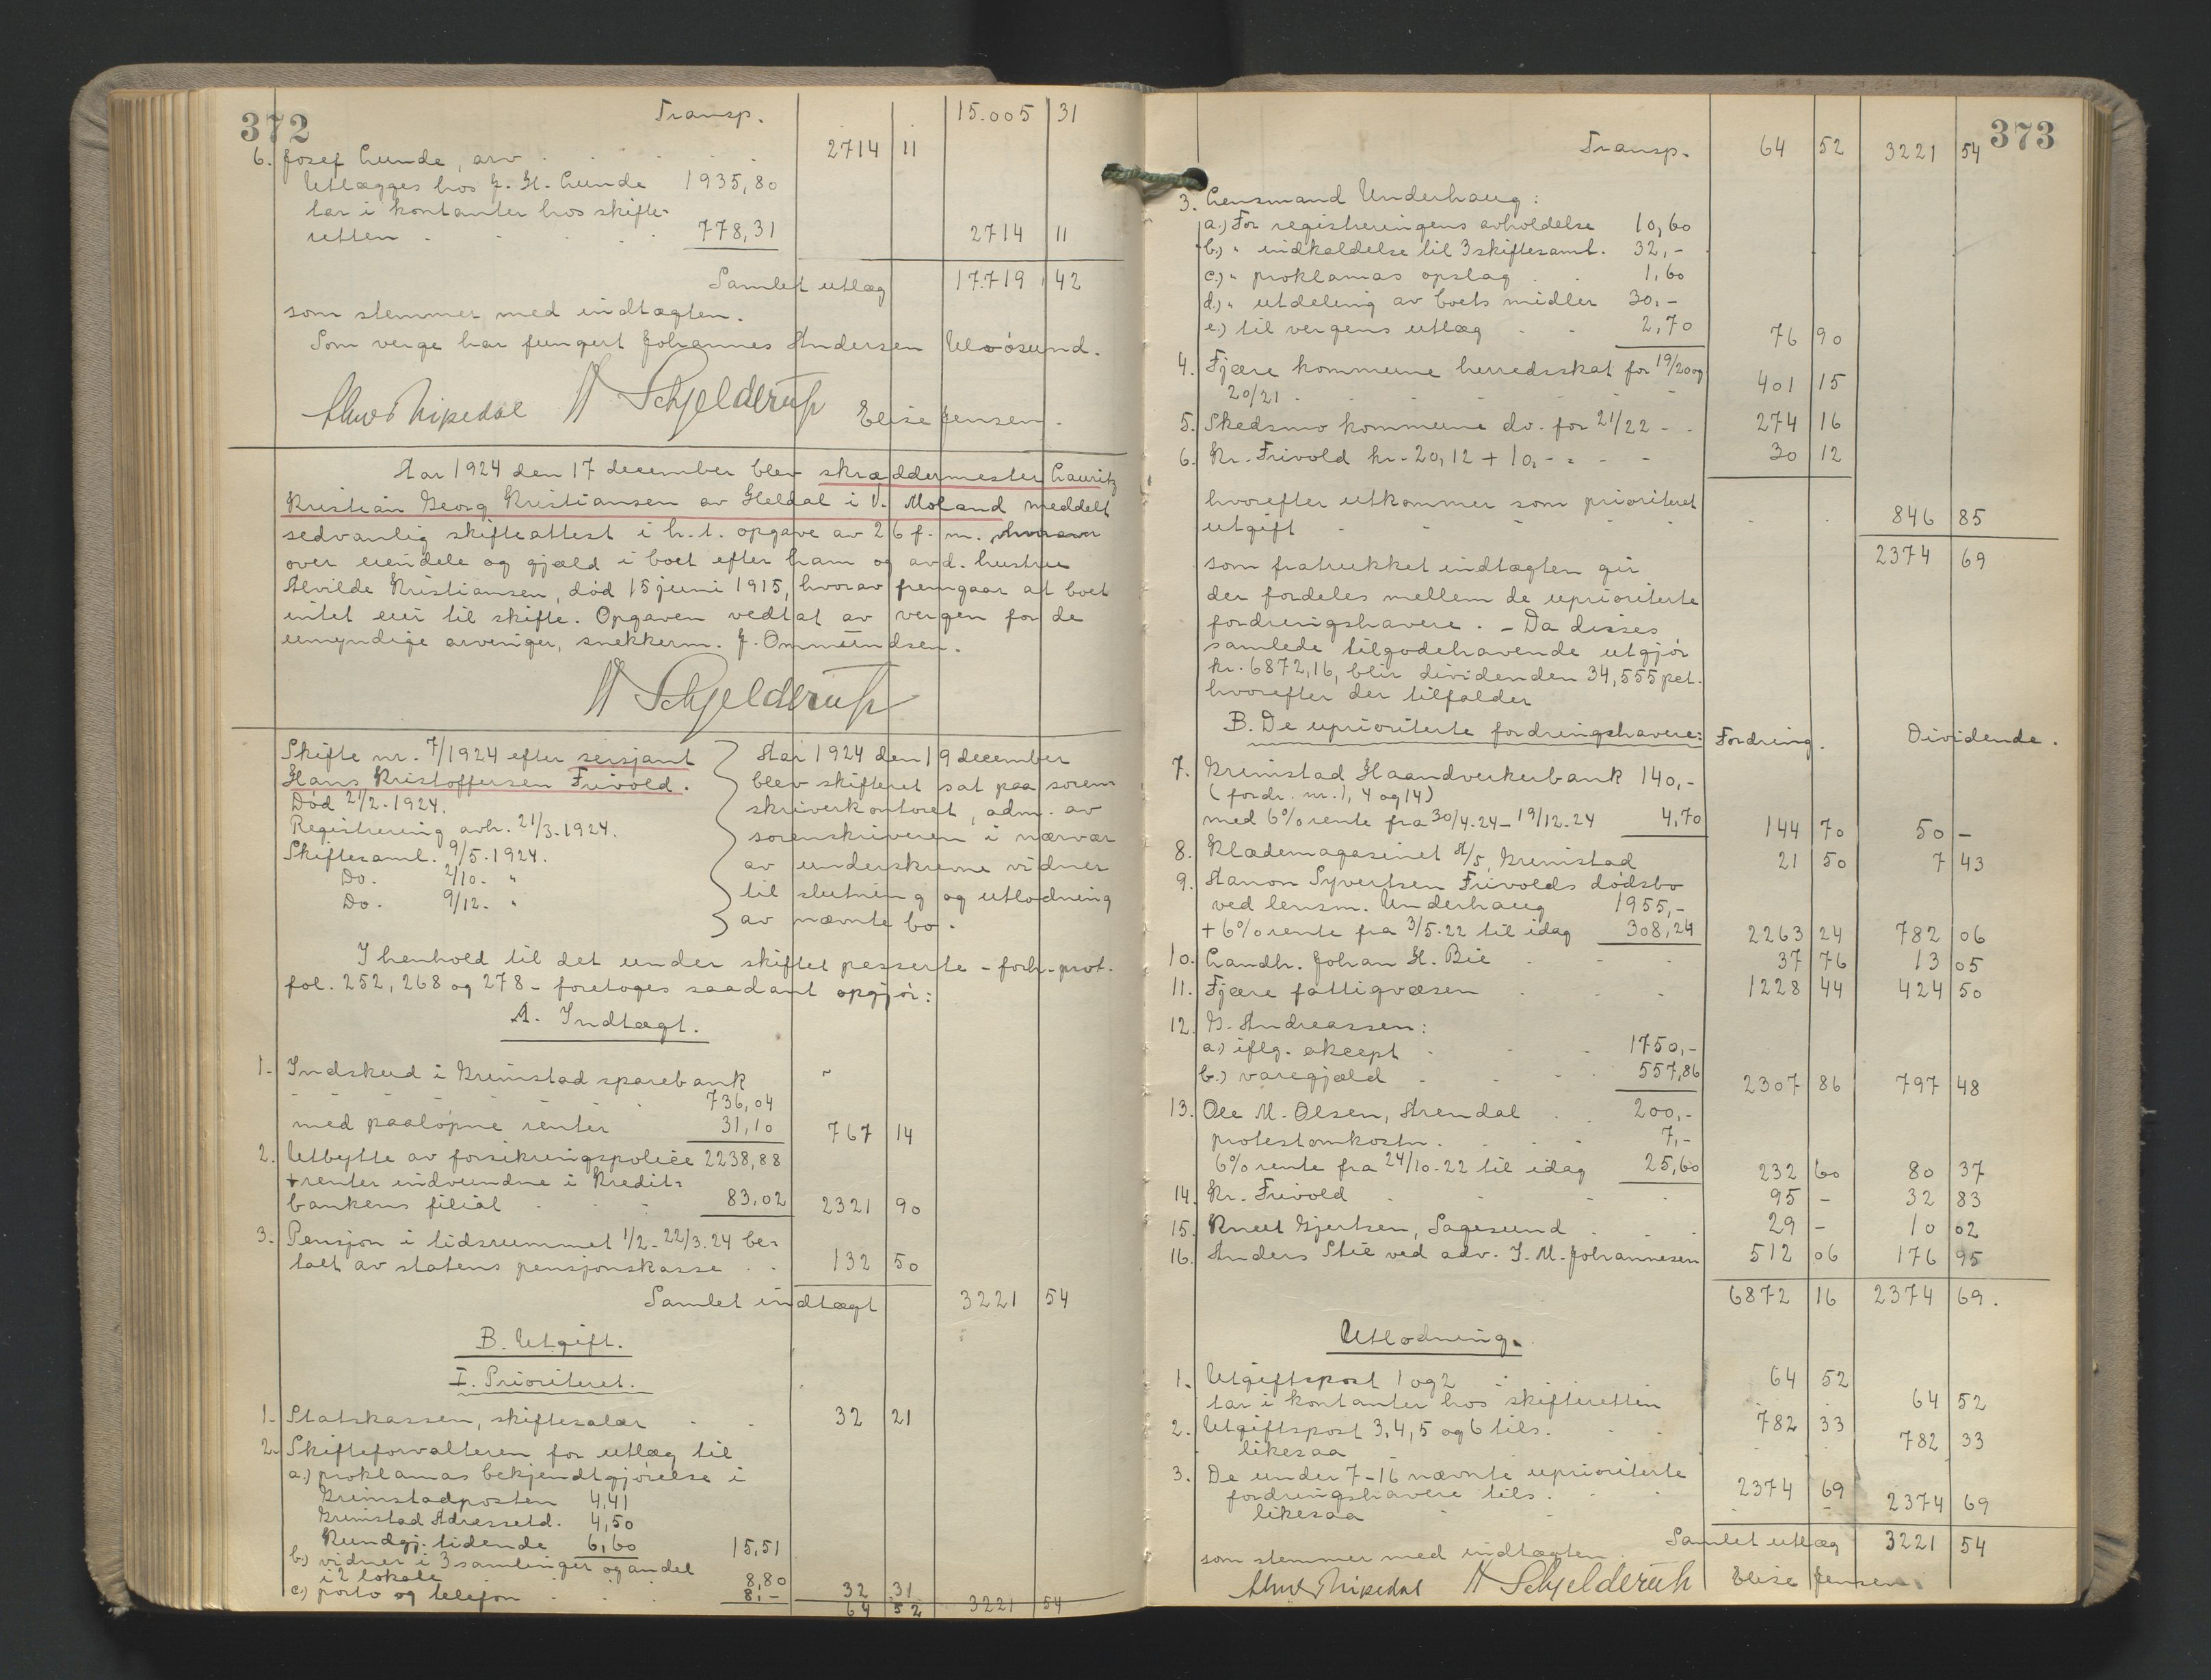 372
Transp. 15.005 31
6. Josef Lunde, arv 2714 11
Utlægges hos J. H. Lunde 1935,80
tar i kontanter hos skifte-
retten 778,31 2714 11
Samlet utlæg 17.719 42
som stemmer med indtægten.
Som verge har fungert Johannes Andersen Uløøsund.
Nipedal A Schjelderup Elise Jensen.
Aar 1924 den 17 december blev skræddermester Lauritz
Kristian Georg Kristiansen av Heldal i V. Moland meddelt
sedvanlig skifteattest i h. t. opgave av 26 f. m.
over eiendele og gjæld i boet efter ham og avd. hustru
Alvilde Kristiansen, død 15 juni 1915, hvorav fremgaar at boet
intet eier til skifte. Opgaven vedtat av vergen for de
umyndige arvinger, snekkerm. J. Ommundsen.
A Schjelderup
Skifte nr. 7/1924 efter sersjant
Hans Kristoffersen Frivold.
Død 21/2-1924.
Registrering avh. 21/3-1924.
Skiftesaml. 9/5-1924.
Do. 2/10- "
Do. 9/12- "
Aar 1924 den 19 december
blev skifteret sat paa soren
skriverkontoret, adm. av
sorenskriveren i nærvær
av underskrevne vidner
til slutning og utlodning
av nævnte bo.
I henhold til det under skiftet passerte - forh.-prot.
fol. 252, 268 og 278 - foretoges saadant opgjør:
A. Indtægt.
1. Indskud i Grimstad sparebank
736,04
med paaløpne renter 31,10 767 14
2. Utbytte av forsikringspolice 2238,88
+ renter indvundne i Kredit-
bankens filial 83,02 2321 90
3. Pensjon i tidsrummet 1/2-22/3.24 be-
talt av statens pensjonskasse 132 50
Samlet indtægt 3221 54
B. Utgift.
I. Prioritert.
1. Statskassen, skiftesalær 32 21
2. Skifteforvalteren for utlæg til
a.) proklamas bekjendtgjørelse i
Grimstadposten 4,41
Grimstad Adressetd. 4,50
Kundgj. tidende 6,60 15,51
b.) vidner i 3 samlinger og andel
i 2 lokale 8,80
c.) porto og telefon 8,- 32 31
64 52 3221 54
373
Transp. 64 52 3221 54
3. Lensmand Underhaug:
a.) For registreringens avholdelse 10,60
b.) " indkaldelse til 3 skiftesaml. 32,-
c.) " proklamas opslag 1,60
d.) " utdeling av boets midler 30,-
e.) til vergens utlæg 2,70 76 90
4. Fjære kommune herredsskat for 19/20 og
20/21 401 15
5. Skedsmo kommune do. for 21/22 274 16
6. Kr. Frivold kr. 20,12 + 10,- 30 12
hvorefter utkommer som prioritert
utgift 846 85
som fratrukket indtægten gir 2374 69
der fordeles mellem de uprioriterte
fordringshavere. - Da disses
samlede tilgodehavende utgjør
kr. 6872,16, blir dividenden 34,555 pct.
hvorefter der tilfalder
B. De uprioriterte fordringshavere: Fordring. Dividende.
7. Grimstad Haandverkerbank 140,-
(fordr. nr. 1, 4 og 14)
med 6% rente fra 30/4-24-19/12-24 4,70 144 70 50 -
8. Klædemagasinet A/S, Grimstad 21 50 7 43
9. Aanon Syvertsen Frivolds dødsbo
ved lensm. Underhaug 1955,-
+ 6% rente fra 3/5-22 til idag 308,24 2263 24 782 06
10. Landh. Johan H. Bie 37 76 13 05
11. Fjære fattigvæsen 1228 44 424 50
12. G. Andreassen:
a.) iflg. aksept 1750,-
b.) varegjæld 557,86 2307 86 797 48
13. Ole M. Olsen, Arendal 200,-
protestomkostn. 7,-
6% rente fra 24/10-22 til idag 25,60 232 60 80 37
14. Kr. Frivold 95 - 32 83
15. Knut Gjertsen, Sagesund 29 - 10 02
16. Anders Stie ved adv. J. M. Johannesen 512 06 176 95
6872 16 2374 69.
Utlodning.
1. Utgiftspost 1 og 2 64 52
tar i kontanter hos skifteretten 64 52
2. Utgiftspost 3, 4, 5 og 6 tils. 782 33
likesaa 782 33
3. De under 7-16 nævnte uprioriterte
fordringshavere tils. 2374 69
likesaa 2374 69
Samlet utlæg 3221 54
som stemmer med indtægten.
Nipedal A Schjelderup Elise Jensen